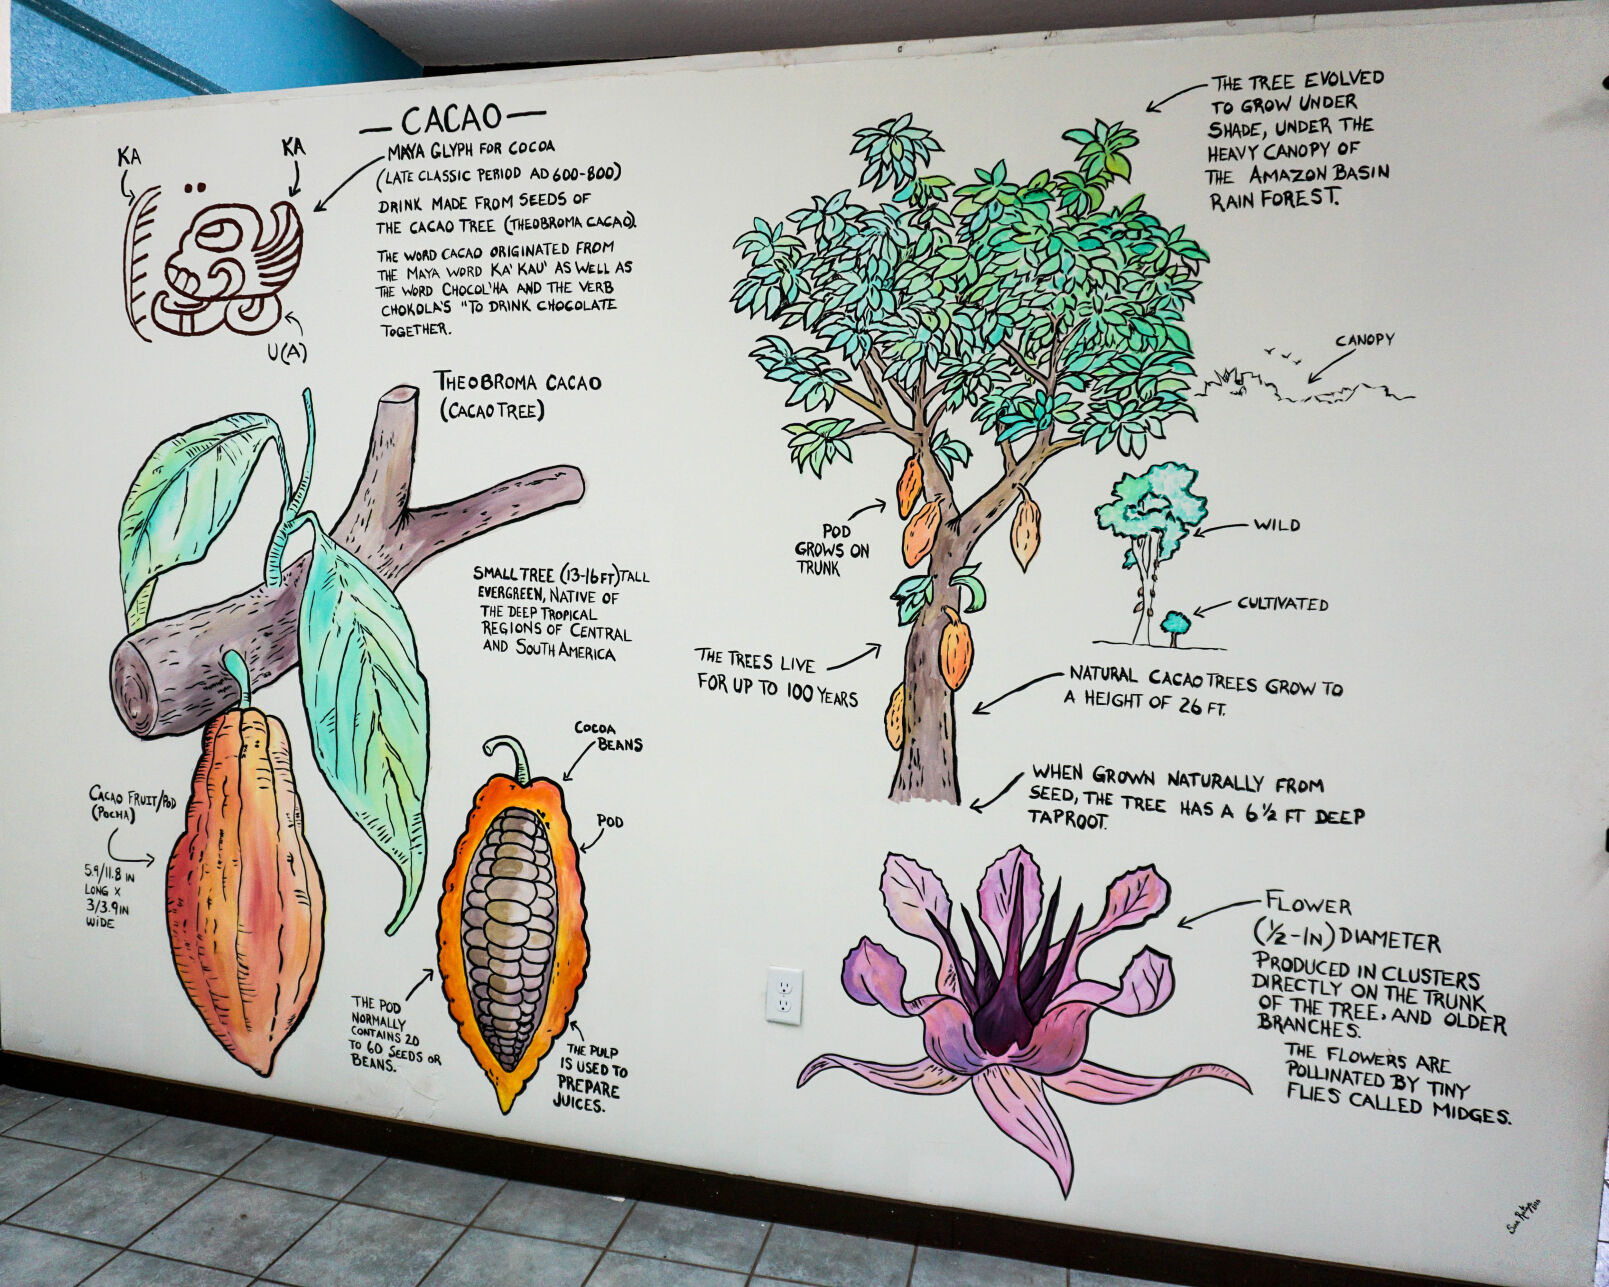 — CACAO —
KA
KA
U(A)
MAYA GLYPH FOR COCOA
(LATE CLASSIC PERIOD AD 600-800)
DRINK MADE FROM SEEDS OF
THE CACAO TREE (THEOBROMA CACAO).
THE WORD CACAO ORIGINATED FROM
THE MAYA WORD KA'KAU' AS WELL AS
THE WORD CHOCOL'HA AND THE VERB
CHOKOLA'S "TO DRINK CHOCOLATE
TOGETHER.
THEOBROMA CACAO
(CACAO TREE)
SMALL TREE (13-16 FT) TALL
EVERGREEN, NATIVE OF
THE DEEP TROPICAL
REGIONS OF CENTRAL
AND SOUTH AMERICA
CACAO FRUIT/POD
(POCHA)
5.9/11.8 IN
LONG X
3/3.9 IN
WIDE
COCOA
BEANS
POD
THE POD
NORMALLY
CONTAINS 20
TO 60 SEEDS OR
BEANS.
THE PULP
IS USED TO
PREPARE
JUICES.
THE TREE EVOLVED
TO GROW UNDER
SHADE, UNDER THE
HEAVY CANOPY OF
THE AMAZON BASIN
RAIN FOREST.
CANOPY
POD
GROWS ON
TRUNK
WILD
CULTIVATED
THE TREES LIVE
FOR UP TO 100 YEARS
NATURAL CACAO TREES GROW TO
A HEIGHT OF 26 FT.
WHEN GROWN NATURALLY FROM
SEED, THE TREE HAS A 6 1/2 FT DEEP
TAPROOT.
FLOWER
(1/2-IN) DIAMETER
PRODUCED IN CLUSTERS
DIRECTLY ON THE TRUNK
OF THE TREE, AND OLDER
BRANCHES.
THE FLOWERS ARE
POLLINATED BY TINY
FLIES CALLED MIDGES.